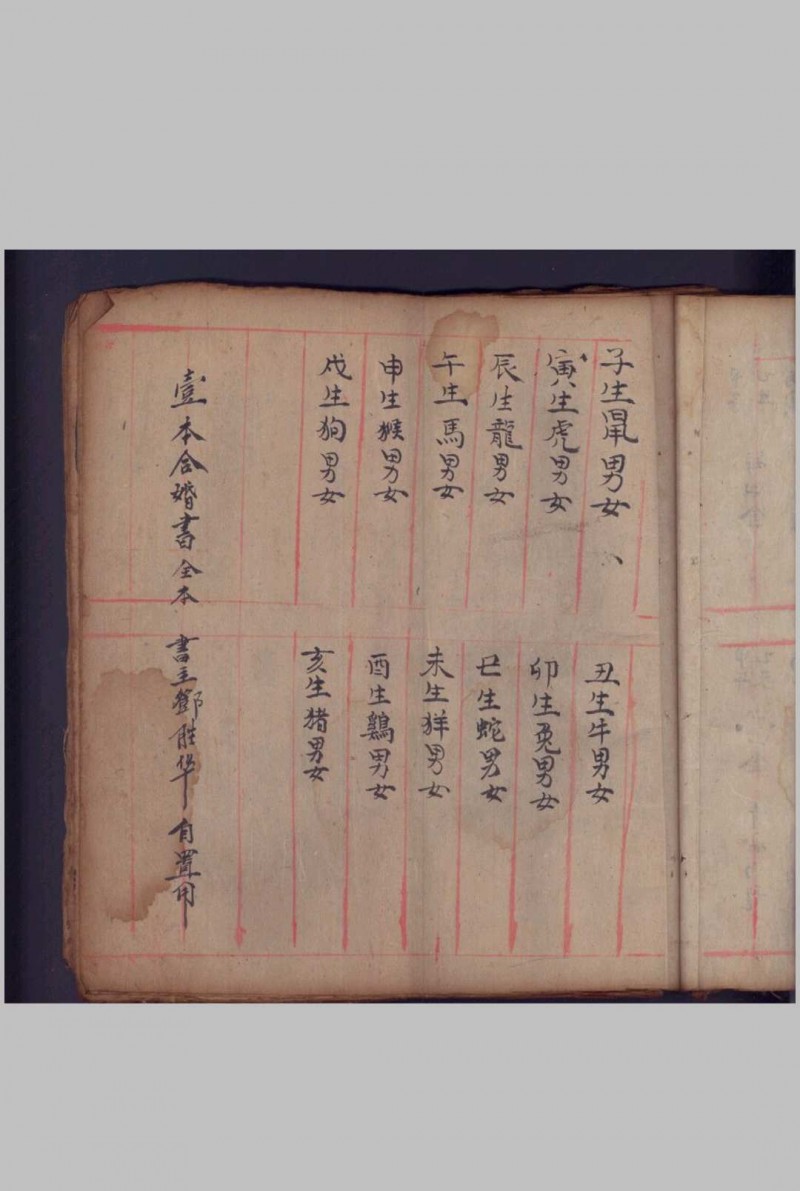 子生鼠男女
丑生牛男女
寅生虎男女
卯生兎男女
辰生龍男女
巳生蛇男女
午生馬男女
未生羊男女
申生猴男女
酉生鷄男女
戌生狗男女
亥生猪男女
壹本合婚書全本 書主鄧勝华自置用